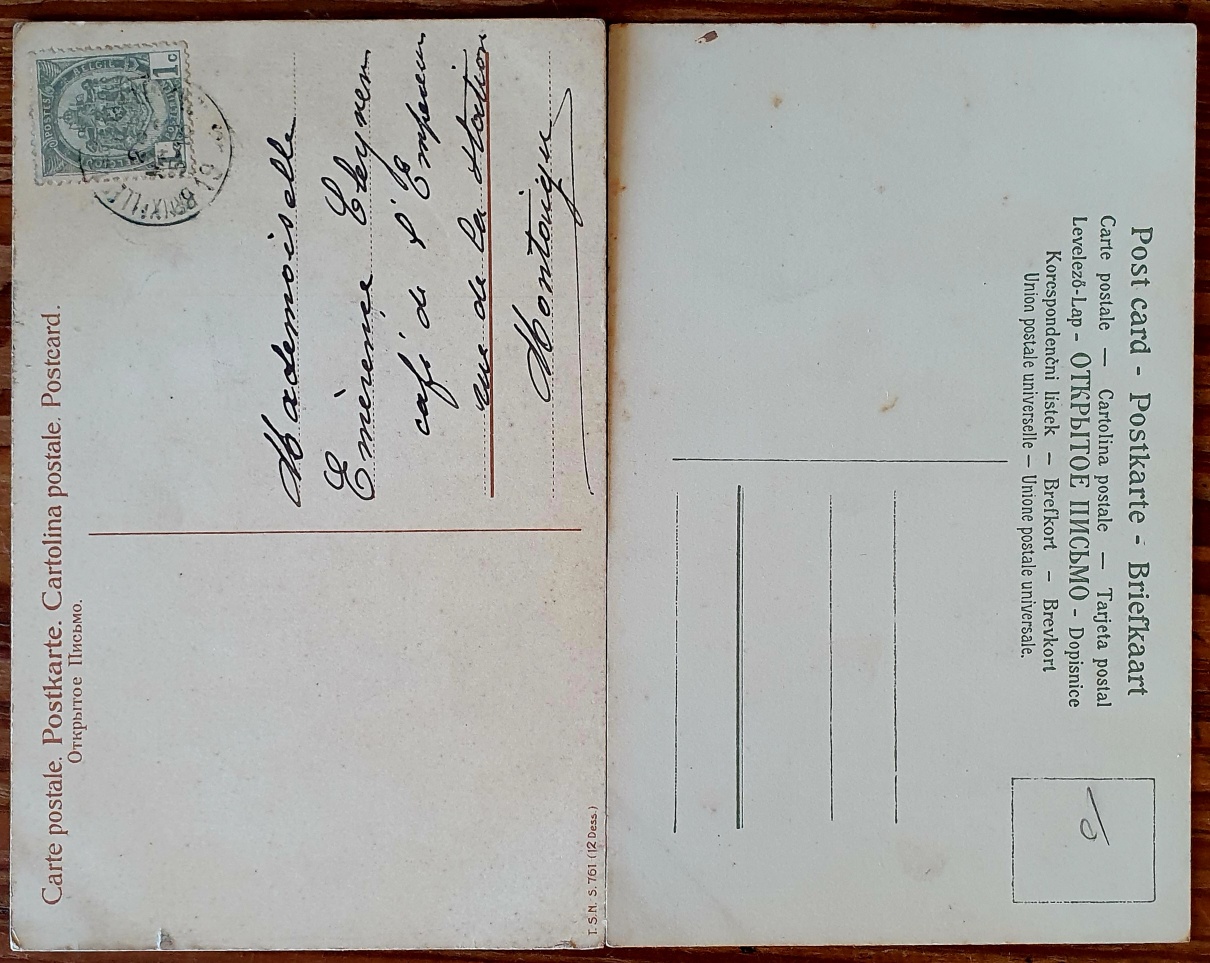 Carte postale. Postkarte. Cartolina postale. Postcard.
Открытое Письмо.
POSTES BELGIË
1c
BRUXELLES
Mademoiselle
Emèrence
café de l'Empereur
rue de la station
T.S.N. S. 761 (12 Dess.)
Post card - Postkarte - Briefkaart
Carte postale — Cartolina postale — Tarjeta postal
Levelező-Lap - ОТКРЫТОЕ ПИСЬМО - Dopisnice
Korespondenčni listek — Brefkort — Brevkort
Union postale universelle — Unione postale universale.